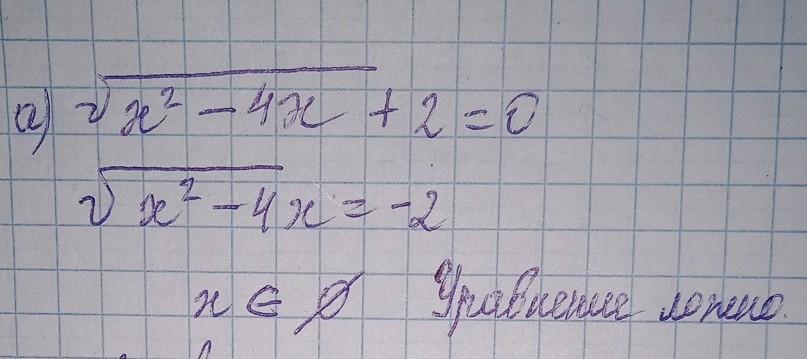 а) √(x² - 4x) + 2 = 0
√(x² - 4x) = -2
x ∈ ∅ Уравнение ложно.